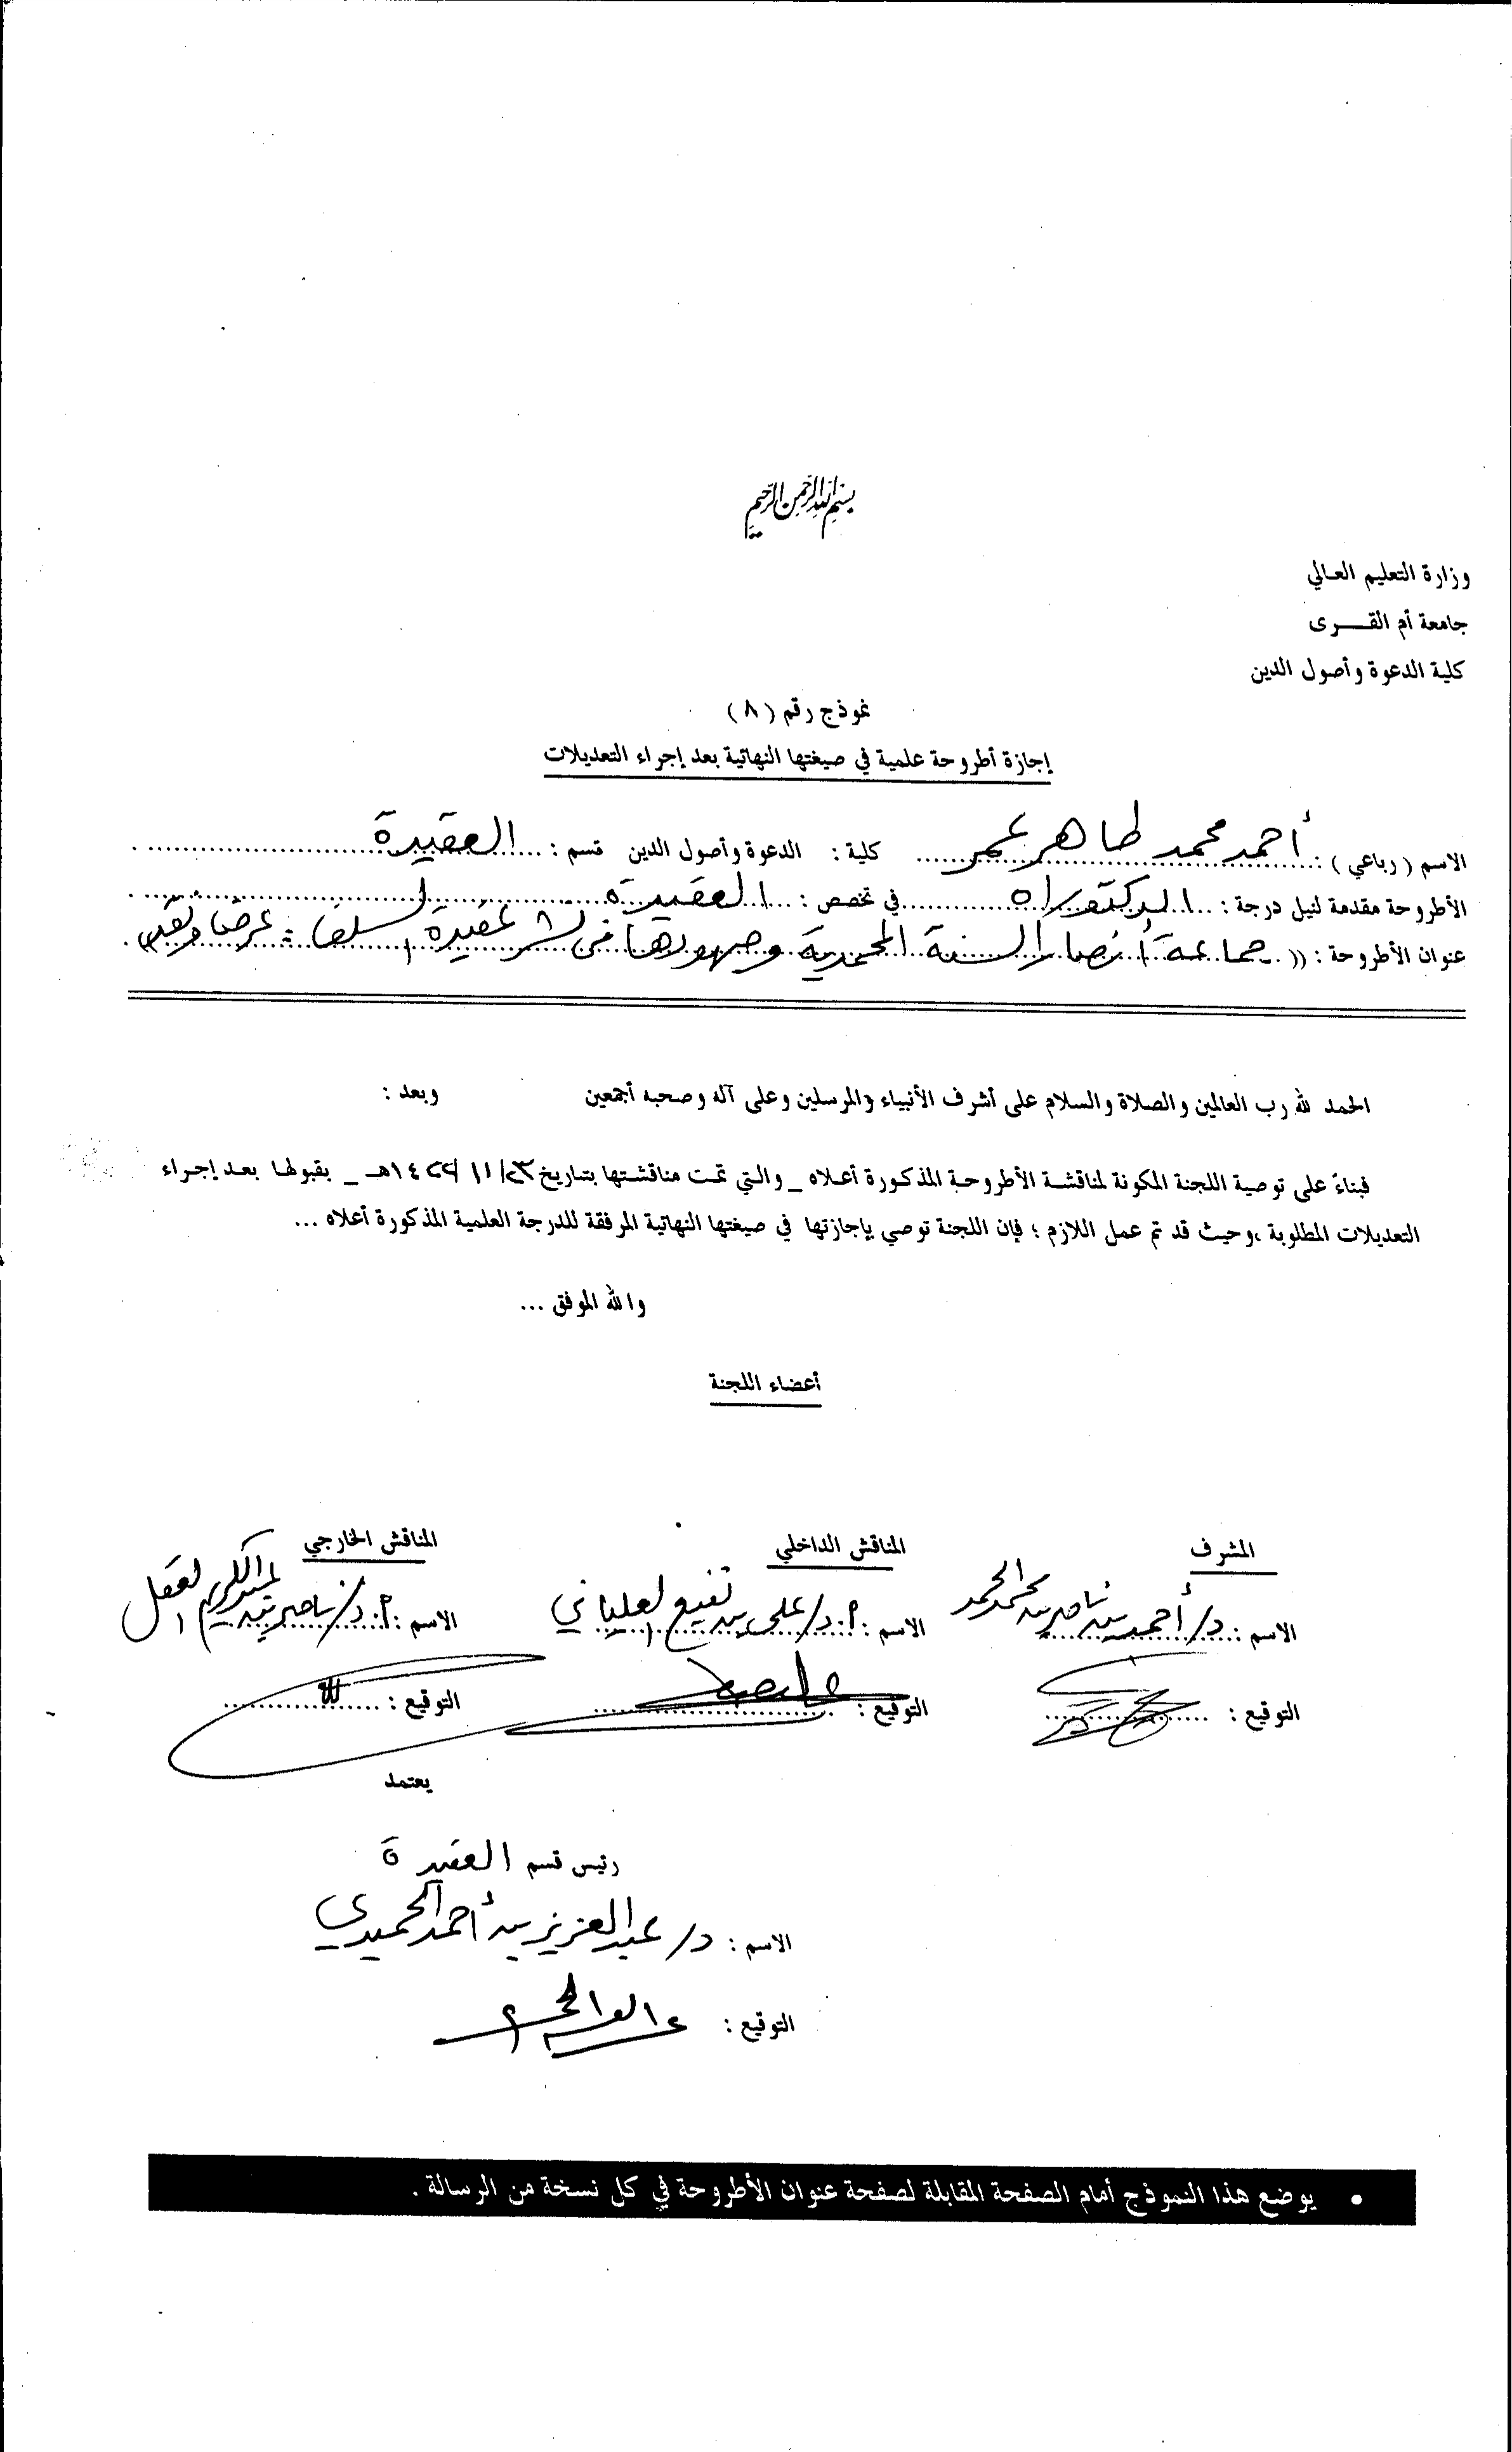 بسم الله الرحمن الرحيم
وزارة التعليم العالي
جامعة أم القـــرى
كلية الدعوة وأصول الدين
نموذج رقم ( ٨ )
إجازة أطروحة علمية في صيغتها النهائية بعد إجراء التعديلات
الاسم ( رباعي ) : أحمد محمد طاهر عمر كلية : الدعوة وأصول الدين قسم : العقيدة
الأطروحة مقدمة لنيل درجة : الدكتوراه في تخصص : العقيدة
عنوان الأطروحة : (( جماعة أنصار السنة المحمدية وجهودها في نشر عقيدة السلف : عرض ونقد ))
الحمد لله رب العالمين والصلاة والسلام على أشرف الأنبياء والمرسلين وعلى آله وصحبه أجمعين وبعد :
فبناءً على توصية اللجنة المكونة لمناقشة الأطروحة المذكورة أعلاه _ والتي تمت مناقشتها بتاريخ ٢٣/ ١١/ ١٤٢٦هـ _ بقبولها بعد إجراء
التعديلات المطلوبة ، وحيث قد تم عمل اللازم ؛ فإن اللجنة توصي بإجازتها في صيغتها النهائية المرفقة للدرجة العلمية المذكورة أعلاه ...
والله الموفق ...
أعضاء اللجنة
المشرف المناقش الداخلي المناقش الخارجي
الاسم : د/ أحمد بن ناصر بن محمد الحمد الاسم : أ.د/ علي بن نفيع العلياني الاسم : أ.د/ ناصر بن عبدالكريم العقل
التوقيع : التوقيع : التوقيع :
يعتمد
رئيس قسم العقيدة
الاسم : د/ عبدالعزيز بن أحمد الحميدي
التوقيع :
• يوضع هذا النموذج أمام الصفحة المقابلة لصفحة عنوان الأطروحة في كل نسخة من الرسالة .